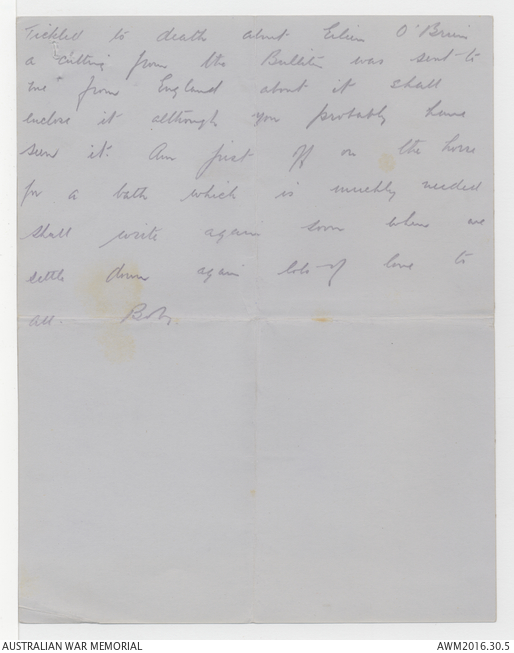 Tickled to death about Eileen O'Brien
a cutting from the Bulletin was sent to
me from England about it shall
enclose it although you probably have
seen it. Am just off on the horse
for a bath which is muchly needed
shall write again soon when we
settle down again lots of love to
all. Bob.
AUSTRALIAN WAR MEMORIAL
AWM2016.30.5